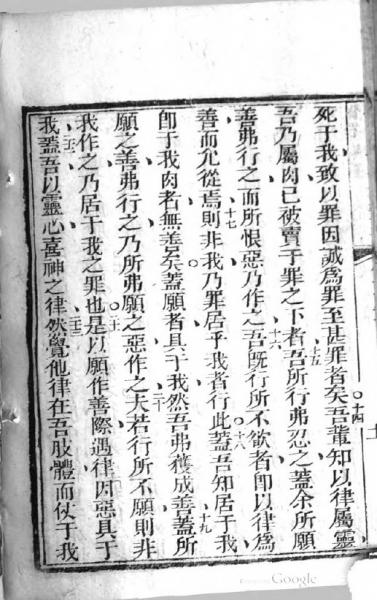 死于我致以罪因誡爲罪至甚罪者矣○十四吾輩知以律屬靈
吾乃屬肉已被賣于罪之下者十五吾所行弗忍之蓋余所願
善弗行之而所恨惡乃作之十六吾既行所不欲者卽以律爲
善而允從焉十七則非我乃罪居乎我者行此○十八蓋吾知居于我
卽于我肉者無善矣○蓋願者具于我然吾弗獲成善十九蓋所
願之善弗行之乃所弗願之惡作之二十夫若行所不願則非
我作之乃居于我之罪也○二一是以願作善際遇律因惡具于
我二二蓋吾以靈心喜神之律二三然覺他律在吾肢體而仗于我
Google